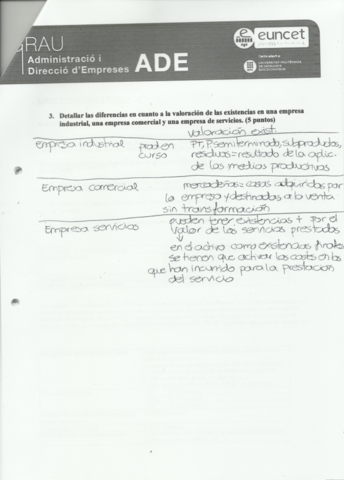 GRAU
Administració i
Direcció d'Empreses ADE
euncet
3. Detallar las diferencias en cuanto a la valoración de las existencias en una empresa
industrial, una empresa comercial y una empresa de servicios. (5 puntos)
valoración exist.
empresa industrial prod en curso PT, P.semiterminado, subproductos,
residuos = resultado de la aplic.
de los medios productivos
Empresa comercial mercaderías = cosas adquiridas por
la empresa y destinadas a la venta
sin transformación
Empresa servicios pueden tener existencias + por el
valor de los servicios prestados
en el activo como existencias finales
se tienen que activar los costes en los
que han incurrido para la prestacion
del servicio